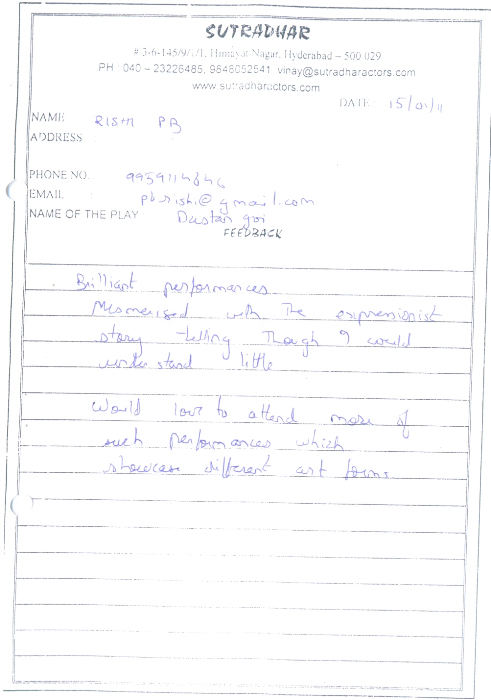 SUTRADHAR
# 3-6-145/9/1/1, Himayat Nagar, Hyderabad – 500 029
PH : 040 – 23226485, 9848052541 vinay@sutradharactors.com
www.sutradharactors.com
DATE : 15/01/11
NAME : RISHI PB
ADDRESS :
PHONE NO. : 9959114646
EMAIL : pbrishi@gmail.com
NAME OF THE PLAY Dastan goi
FEEDBACK
Brilliant performances
Mesmerised with the expressionist
story telling Though I could
understand little
Would love to attend more of
such performances which
showcase different art forms.